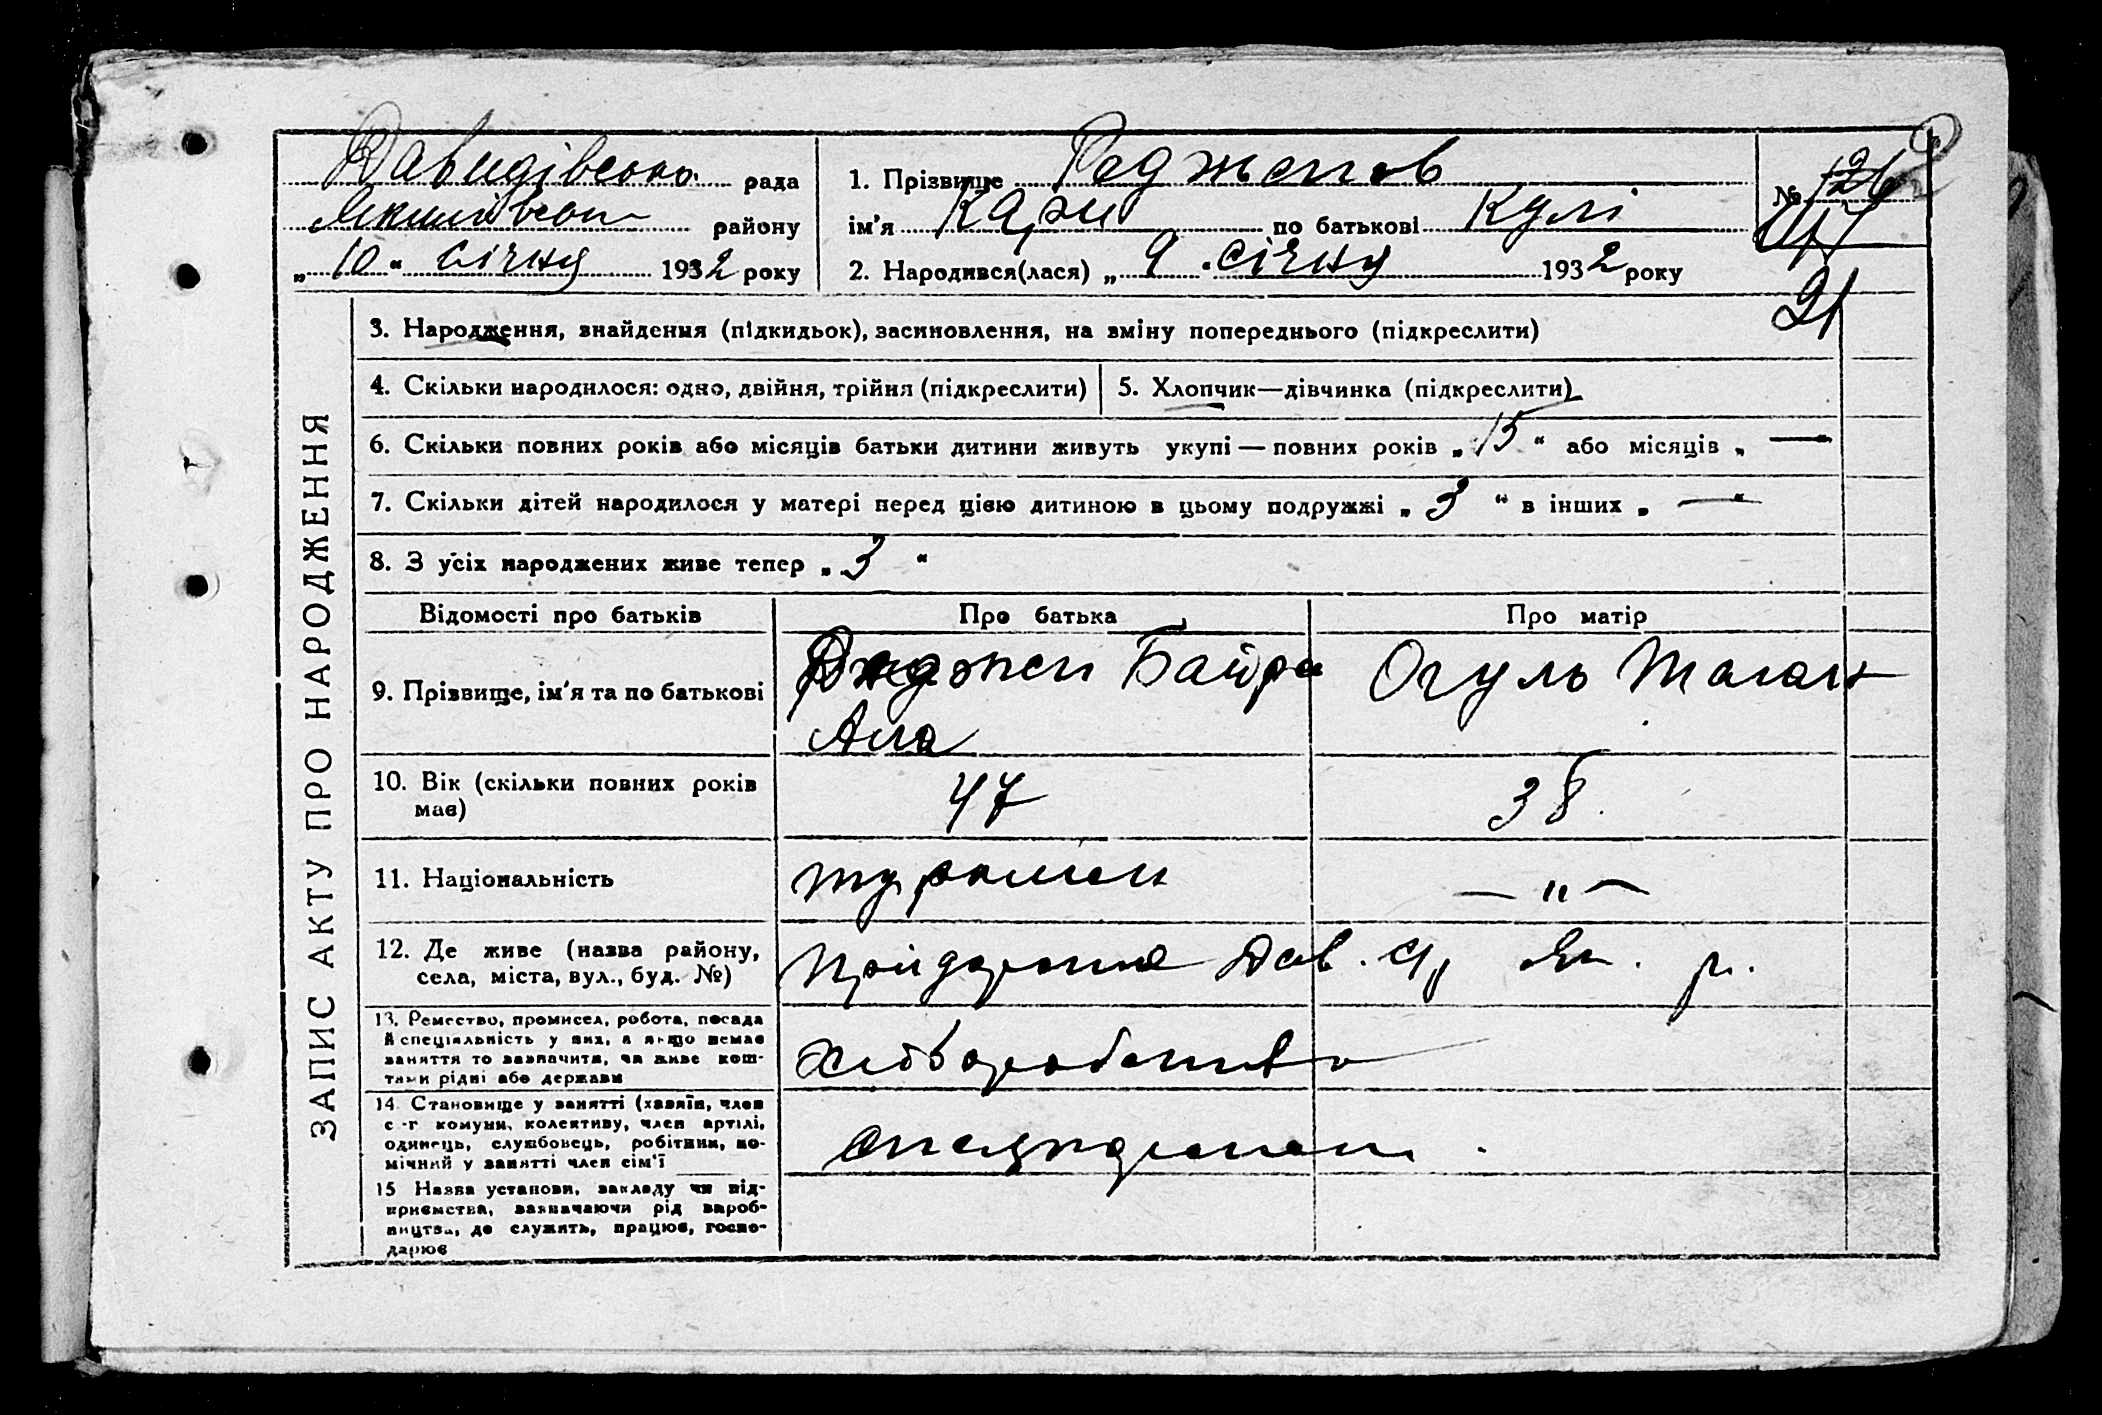 Давидівсько рада
Якимівськ району
„10“ січня 1932 року
1. Прізвище Реджепов
ім'я Кари по батькові Кулі
2. Народився(лася) „ 9 “ січня 1932 року
№ 126
21
ЗАПИС АКТУ ПРО НАРОДЖЕННЯ
3. Народження, знайдення (підкидьок), засиновлення, на зміну попереднього (підкреслити)
4. Скільки народилося: одно, двійня, трійня (підкреслити)
5. Хлопчик—дівчинка (підкреслити)
6. Скільки повних років або місяців батьки дитини живуть укупі — повних років „ 15 “ або місяців „ —
7. Скільки дітей народилося у матері перед цією дитиною в цьому подружжі „ 3 “ в інших „ — “
8. З усіх народжених живе тепер „ 3 “
Відомості про батьків
Про батька
Про матір
9. Прізвище, ім'я та по батькові
Реджеп Байра
Огуль Таган
10. Вік (скільки повних років
має)
47
38
11. Національність
туркмен
— " —
12. Де живе (назва району,
села, міста, вул., буд. №)
Дав. с/р Як. р.
13. Ремество, промисел, робота, посада
й спеціяльність у них, а якщо немає
заняття то зазначити, чи живе кош-
тами рідні або держави
хліборобство
14. Становище у занятті (хазяїн, член
с.-г комуни, колективу, член артілі,
одинець, службовець, робітник, по-
мічний у занятті член сім'ї
15 Назва установи, закладу чи під-
приємства, зазначаючи рід вироб-
ництва, де служить, працює, госпо-
дарює